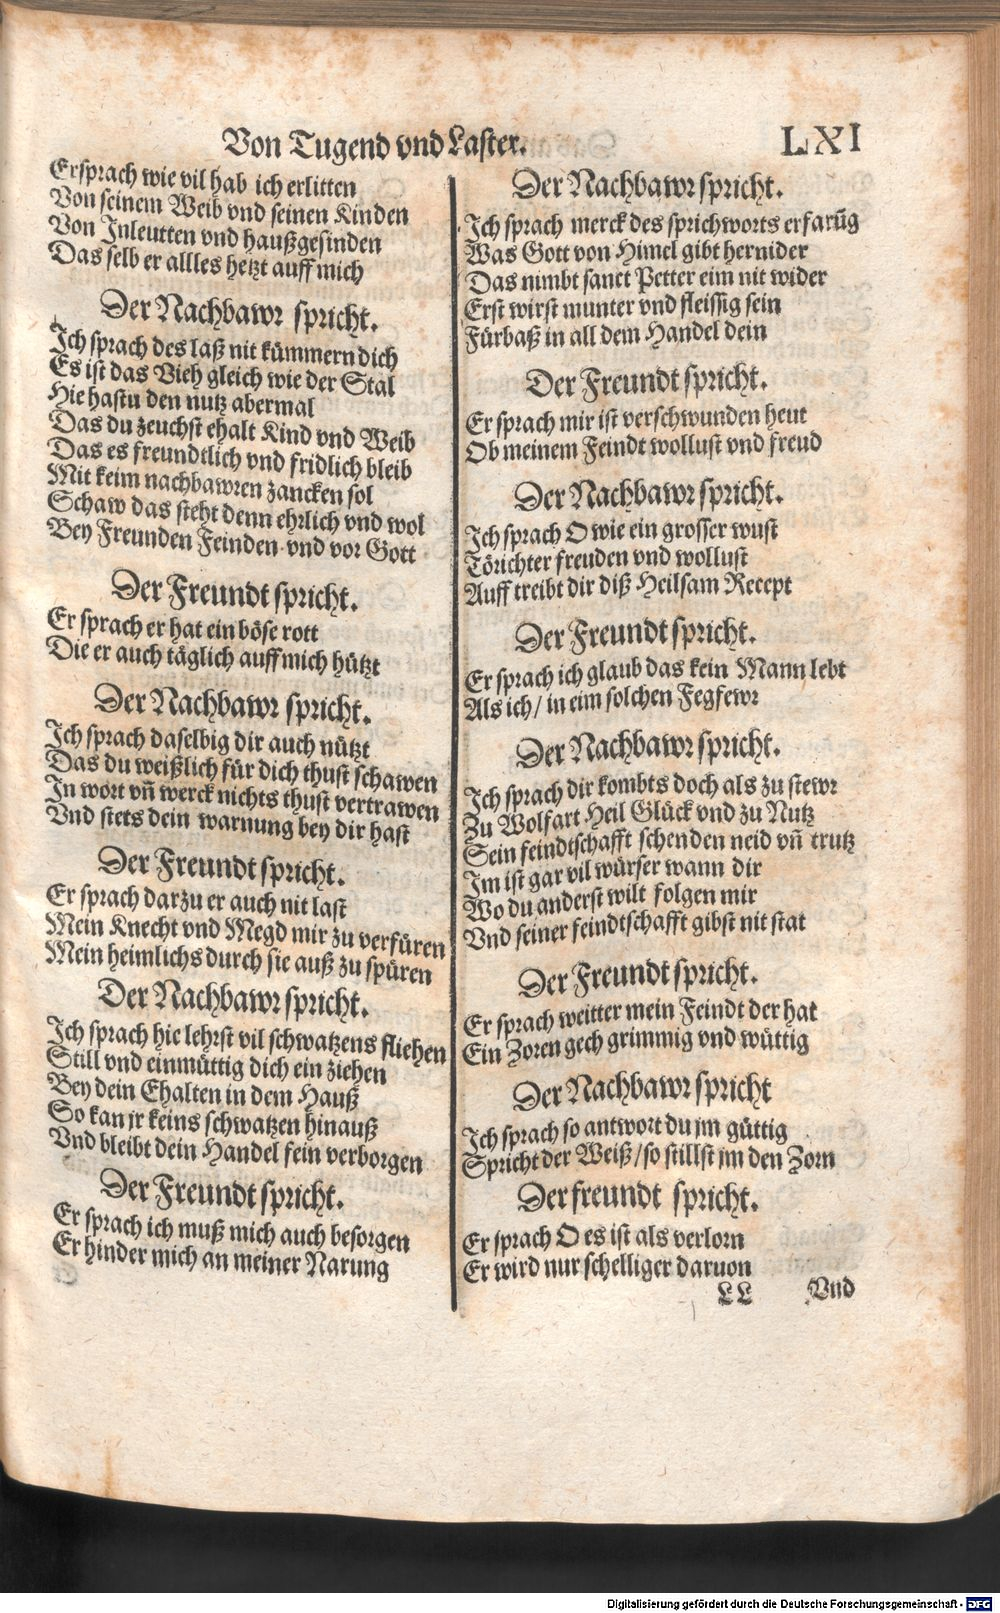 Von Tugend vnd Laster. LXI
Ersprach wie vil hab ich erlitten
Von seinem Weib vnd seinen Kinden
Von Inleutten vnd haußgesinden
Das selb er allles hetzt auff mich
Der Nachbawr spricht.
Ich sprach des laß nit kümmern dich
Es ist das Vieh gleich wie der Stal
Hie hastu den nutz abermal
Das du zeuchst ehalt Kind vnd Weib
Das es freundtlich vnd fridlich bleib
Mit keim nachbawren zancken sol
Schaw das steht denn ehrlich vnd wol
Bey Freunden Feinden vnd vor Gott
Der Freundt spricht.
Er sprach er hat ein böse rott
Die er auch täglich auff mich hützt
Der Nachbawr spricht.
Ich sprach daselbig dir auch nützt
Das du weißlich für dich thust schawen
In wort vñ werck nichts thust vertrawen
Vnd stets dein warnung bey dir hast
Der Freundt spricht.
Er sprach darzu er auch nit last
Mein Knecht vnd Megd mir zu verfüren
Mein heimlichs durch sie auß zu spüren
Der Nachbawr spricht.
Ich sprach hie lehrst vil schwatzens fliehen
Still vnd einmüttig dich ein ziehen
Bey dein Ehalten in dem Hauß
So kan jr keins schwatzen hinauß
Vnd bleibt dein Handel fein verborgen
Der Freundt spricht.
Er sprach ich muß mich auch besorgen
Er hinder mich an meiner Narung
Der Nachbawr spricht.
Ich sprach merck des sprichworts erfarūg
Was Gott von Himel gibt hernider
Das nimbt sanct Petter eim nit wider
Erst wirst munter vnd fleissig sein
Fürbaß in all dem Handel dein
Der Freundt spricht.
Er sprach mir ist verschwunden heut
Ob meinem Feindt wollust vnd freud
Der Nachbawr spricht.
Ich sprach O wie ein grosser wust
Törichter freuden vnd wollust
Auff treibt dir diß Heilsam Recept
Der Freundt spricht.
Er sprach ich glaub das kein Mann lebt
Als ich / in eim solchen Fegfewr
Der Nachbawr spricht.
Ich sprach dir kombts doch als zu stewr
Zu Wolfart Heil Glück vnd zu Nutz
Sein feindtschafft schenden neid vñ trutz
Im ist gar vil würser wann dir
Wo du anderst wilt folgen mir
Vnd seiner feindtschafft gibst nit stat
Der Freundt spricht.
Er sprach weitter mein Feindt der hat
Ein Zoren gech grimmig vnd wüttig
Der Nachbawr spricht
Ich sprach so antwort du jm güttig
Spricht der Weiß / so stillst jm den Zorn
Der freundt spricht.
Er sprach O es ist als verlorn
Er wird nur schelliger daruon
LL Vnd
Digitalisierung gefördert durch die Deutsche Forschungsgemeinschaft - DFG